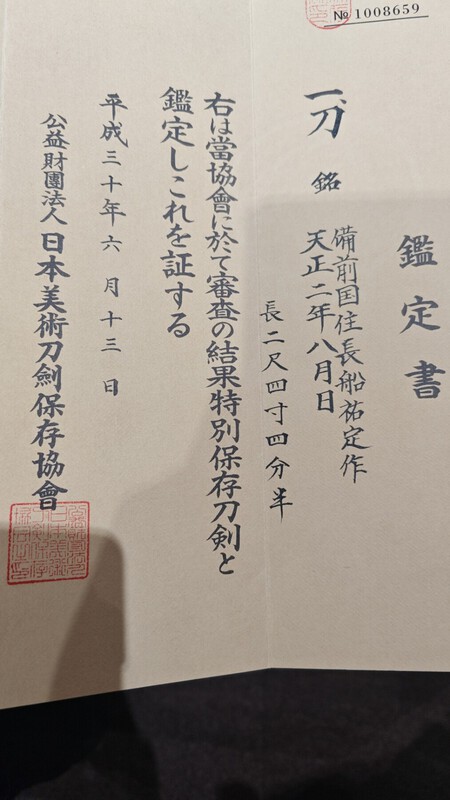 №1008659
鑑定書
一、刀 銘 備前国住長船祐定作
天正二年八月日
長二尺四寸四分半
右は當協會に於て審査の結果特別保存刀剣と
鑑定しこれを証する
平成三十年六月十三日
公益財團法人 日本美術刀劍保存協會